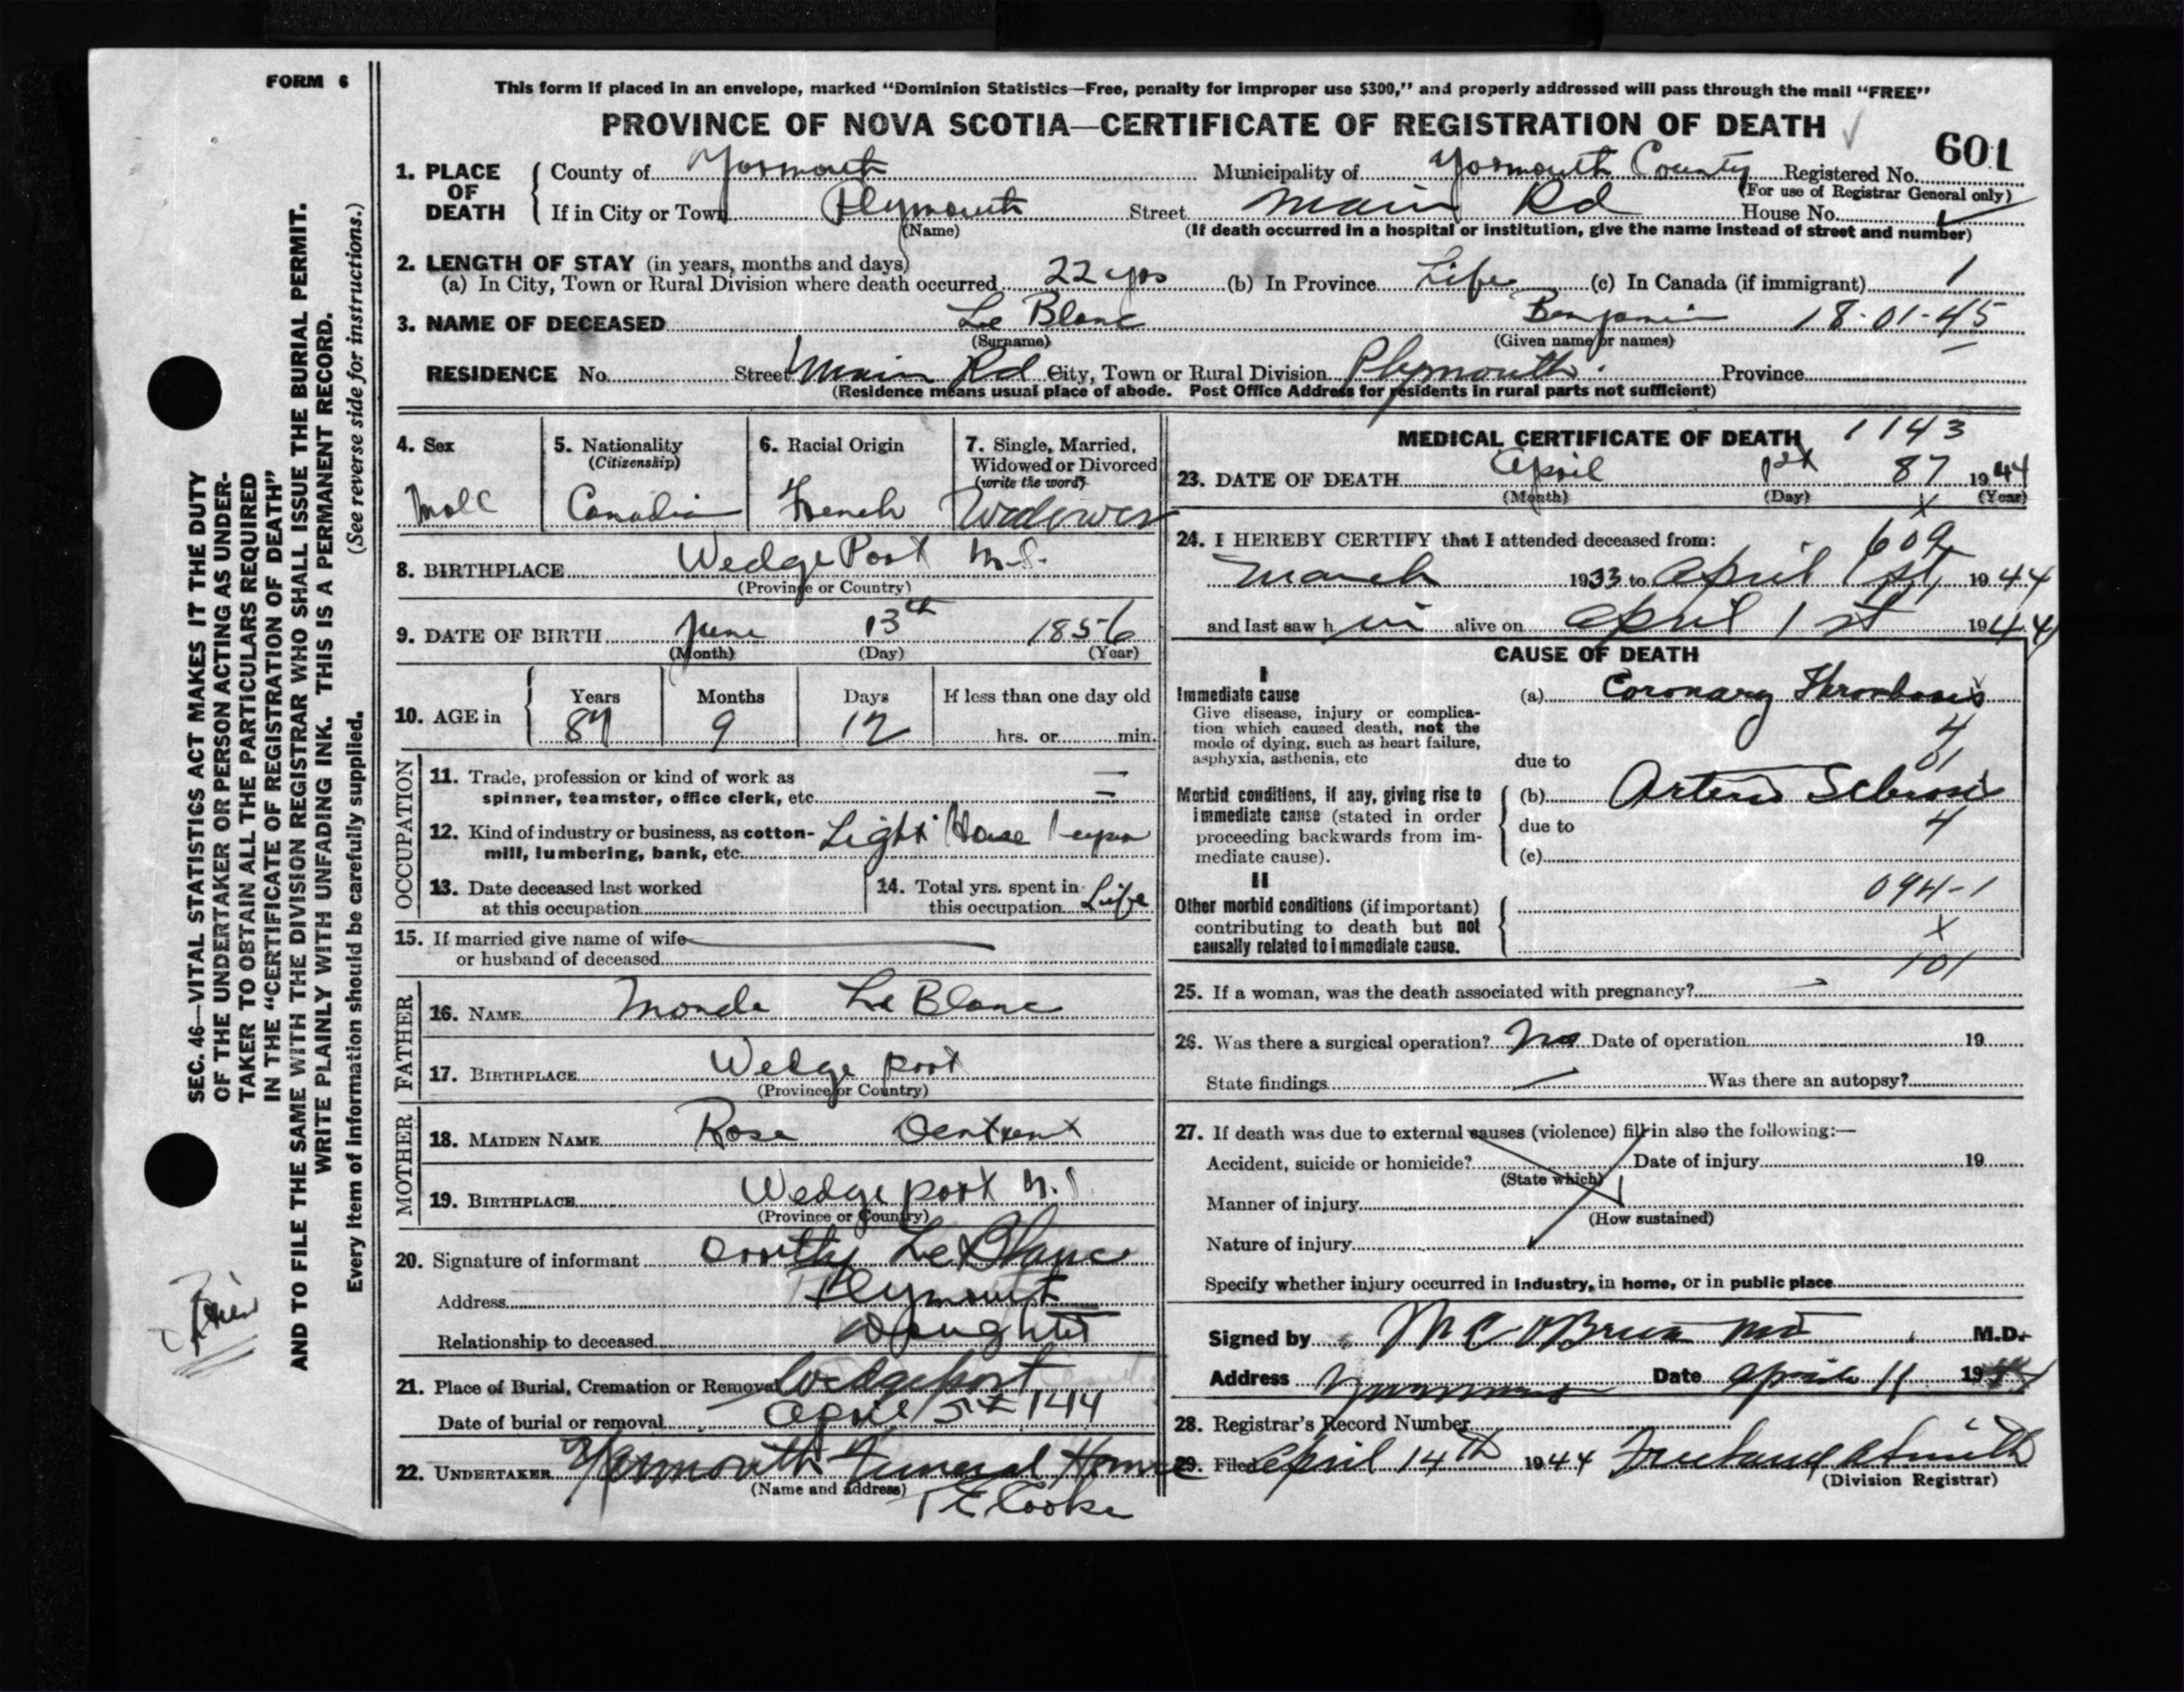 FORM 6
This form if placed in an envelope, marked “Dominion Statistics—Free, penalty for improper use $300,” and properly addressed will pass through the mail “FREE”
PROVINCE OF NOVA SCOTIA—CERTIFICATE OF REGISTRATION OF DEATH
601
1. PLACE OF DEATH
County of Yarmouth Municipality of Yarmouth County Registered No.
(For use of Registrar General only)
If in City or Town Plymouth Street Main Rd House No.
(Name) (If death occurred in a hospital or institution, give the name instead of street and number)
2. LENGTH OF STAY (in years, months and days)
(a) In City, Town or Rural Division where death occurred 22 yrs (b) In Province Life (c) In Canada (if immigrant) 1
3. NAME OF DECEASED Le Blanc Benjamin 18-01-45
(Surname) (Given name or names)
RESIDENCE No. Street Main Rd City, Town or Rural Division Plymouth. Province
(Residence means usual place of abode. Post Office Address for residents in rural parts not sufficient)
4. Sex
Male
5. Nationality
(Citizenship)
Canadian
6. Racial Origin
French
7. Single, Married,
Widowed or Divorced
(write the word)
Widower
8. BIRTHPLACE Wedge Port N.S.
(Province or Country)
9. DATE OF BIRTH June 13th 1856
(Month) (Day) (Year)
10. AGE in
Years Months Days If less than one day old
87 9 12 hrs. or min.
OCCUPATION
11. Trade, profession or kind of work as
spinner, teamster, office clerk, etc.
12. Kind of industry or business, as cotton-
mill, lumbering, bank, etc. Light House
13. Date deceased last worked
at this occupation
14. Total yrs. spent in
this occupation Life
15. If married give name of wife
or husband of deceased
FATHER
16. NAME Monde Le Blanc
17. BIRTHPLACE Wedge port
(Province or Country)
MOTHER
18. MAIDEN NAME Rose
19. BIRTHPLACE Wedge port N.S.
(Province or Country)
20. Signature of informant Le Blanc
Address Plymouth
Relationship to deceased Daughter
21. Place of Burial, Cremation or Removal Wedgeport
Date of burial or removal April 5th 1944
22. UNDERTAKER Yarmouth Funeral Home
(Name and address)
E Cooke
MEDICAL CERTIFICATE OF DEATH 1143
23. DATE OF DEATH April 1st 87 1944
(Month) (Day) X (Year)
24. I HEREBY CERTIFY that I attended deceased from: 609
March 1933 to April 1st, 1944
and last saw h im alive on April 1st 1944
CAUSE OF DEATH
I
Immediate cause
Give disease, injury or complica-
tion which caused death, not the
mode of dying, such as heart failure,
asphyxia, asthenia, etc
(a) Coronary Thrombosis
4
01
due to
Morbid conditions, if any, giving rise to
immediate cause (stated in order
proceeding backwards from im-
mediate cause).
(b) Arterio Sclerosis
due to 4
(c)
II
Other morbid conditions (if important)
contributing to death but not
causally related to immediate cause.
094-1
X
101
25. If a woman, was the death associated with pregnancy?
26. Was there a surgical operation? No Date of operation 19
State findings Was there an autopsy?
27. If death was due to external causes (violence) fill in also the following:—
Accident, suicide or homicide? Date of injury 19
(State which)
Manner of injury
(How sustained)
Nature of injury
Specify whether injury occurred in industry, in home, or in public place
Signed by M C O'Brien MD M.D.
Address Yarmouth Date April 11 1944
28. Registrar's Record Number
29. Filed April 14th 1944 Smith
(Division Registrar)
SEC. 46—VITAL STATISTICS ACT MAKES IT THE DUTY
OF THE UNDERTAKER OR PERSON ACTING AS UNDER-
TAKER TO OBTAIN ALL THE PARTICULARS REQUIRED
IN THE “CERTIFICATE OF REGISTRATION OF DEATH”
AND TO FILE THE SAME WITH THE DIVISION REGISTRAR WHO SHALL ISSUE THE BURIAL PERMIT.
WRITE PLAINLY WITH UNFADING INK. THIS IS A PERMANENT RECORD.
Every item of information should be carefully supplied. (See reverse side for instructions.)